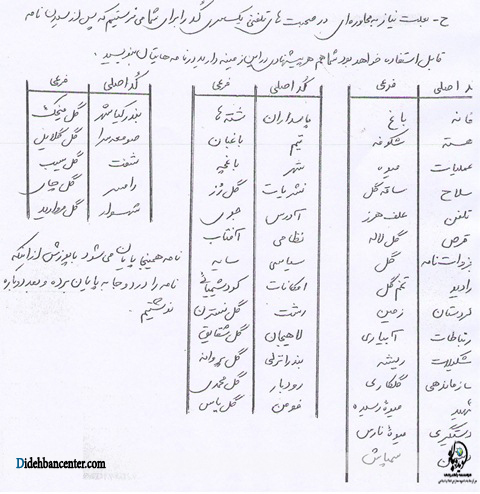 ح - بعلت نیاز به محاوره‌ای در صحبت های تلفنی یکسری کُد را برای شما می فرستیم که پس از رسیدن نامه
قابل استفاده خواهد بود شما هم هر پیشنهادی در این زمینه دارید در نامه هایتان بنویسید.
د اصلی فرعی
خانه باغ
هسته شکوفه
عملیات میوه
سلاح ساقه گل
تلفن علف هرز
قرص گل لاله
جزوات نامه گل
رادیو تخم گل
کردستان زمین
رتباطات آبیاری
شکیلات ریشه
سازماندهی گلکاری
شهید میوه رسیده
دستگیری میوه نارس
سمپاش
کد اصلی فرعی
پاسداران شته ها
تیم باغبان
شهر باغچه
نشریات گل رُز
آدرس جوی
نظامی آفتاب
سیاسی سایه
امکانات کود شیمیائی
رشت گل نسترن
لاهیجان گل شقایق
بندر انزلی گل پروانه
رودبار گل محمدی
فومن گل یاس
کُد اصلی فرعی
بندر کیاشهر گل میخک
صومعه سرا گل گلایل
شفت گل سیب
رامسر گل چای
شهسوار گل مروارید
نامه همینجا پایان می شود با پوزش از اینکه
نامه را در دو جا به پایان برده و بعد دوباره
نوشتیم.
Didehbancenter.com